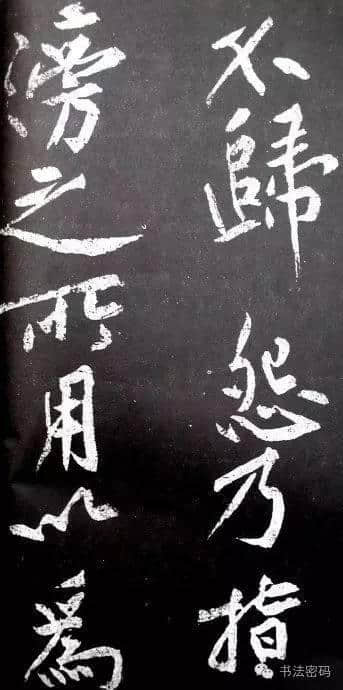 不歸怨乃指
滂之所用以爲
书法密码